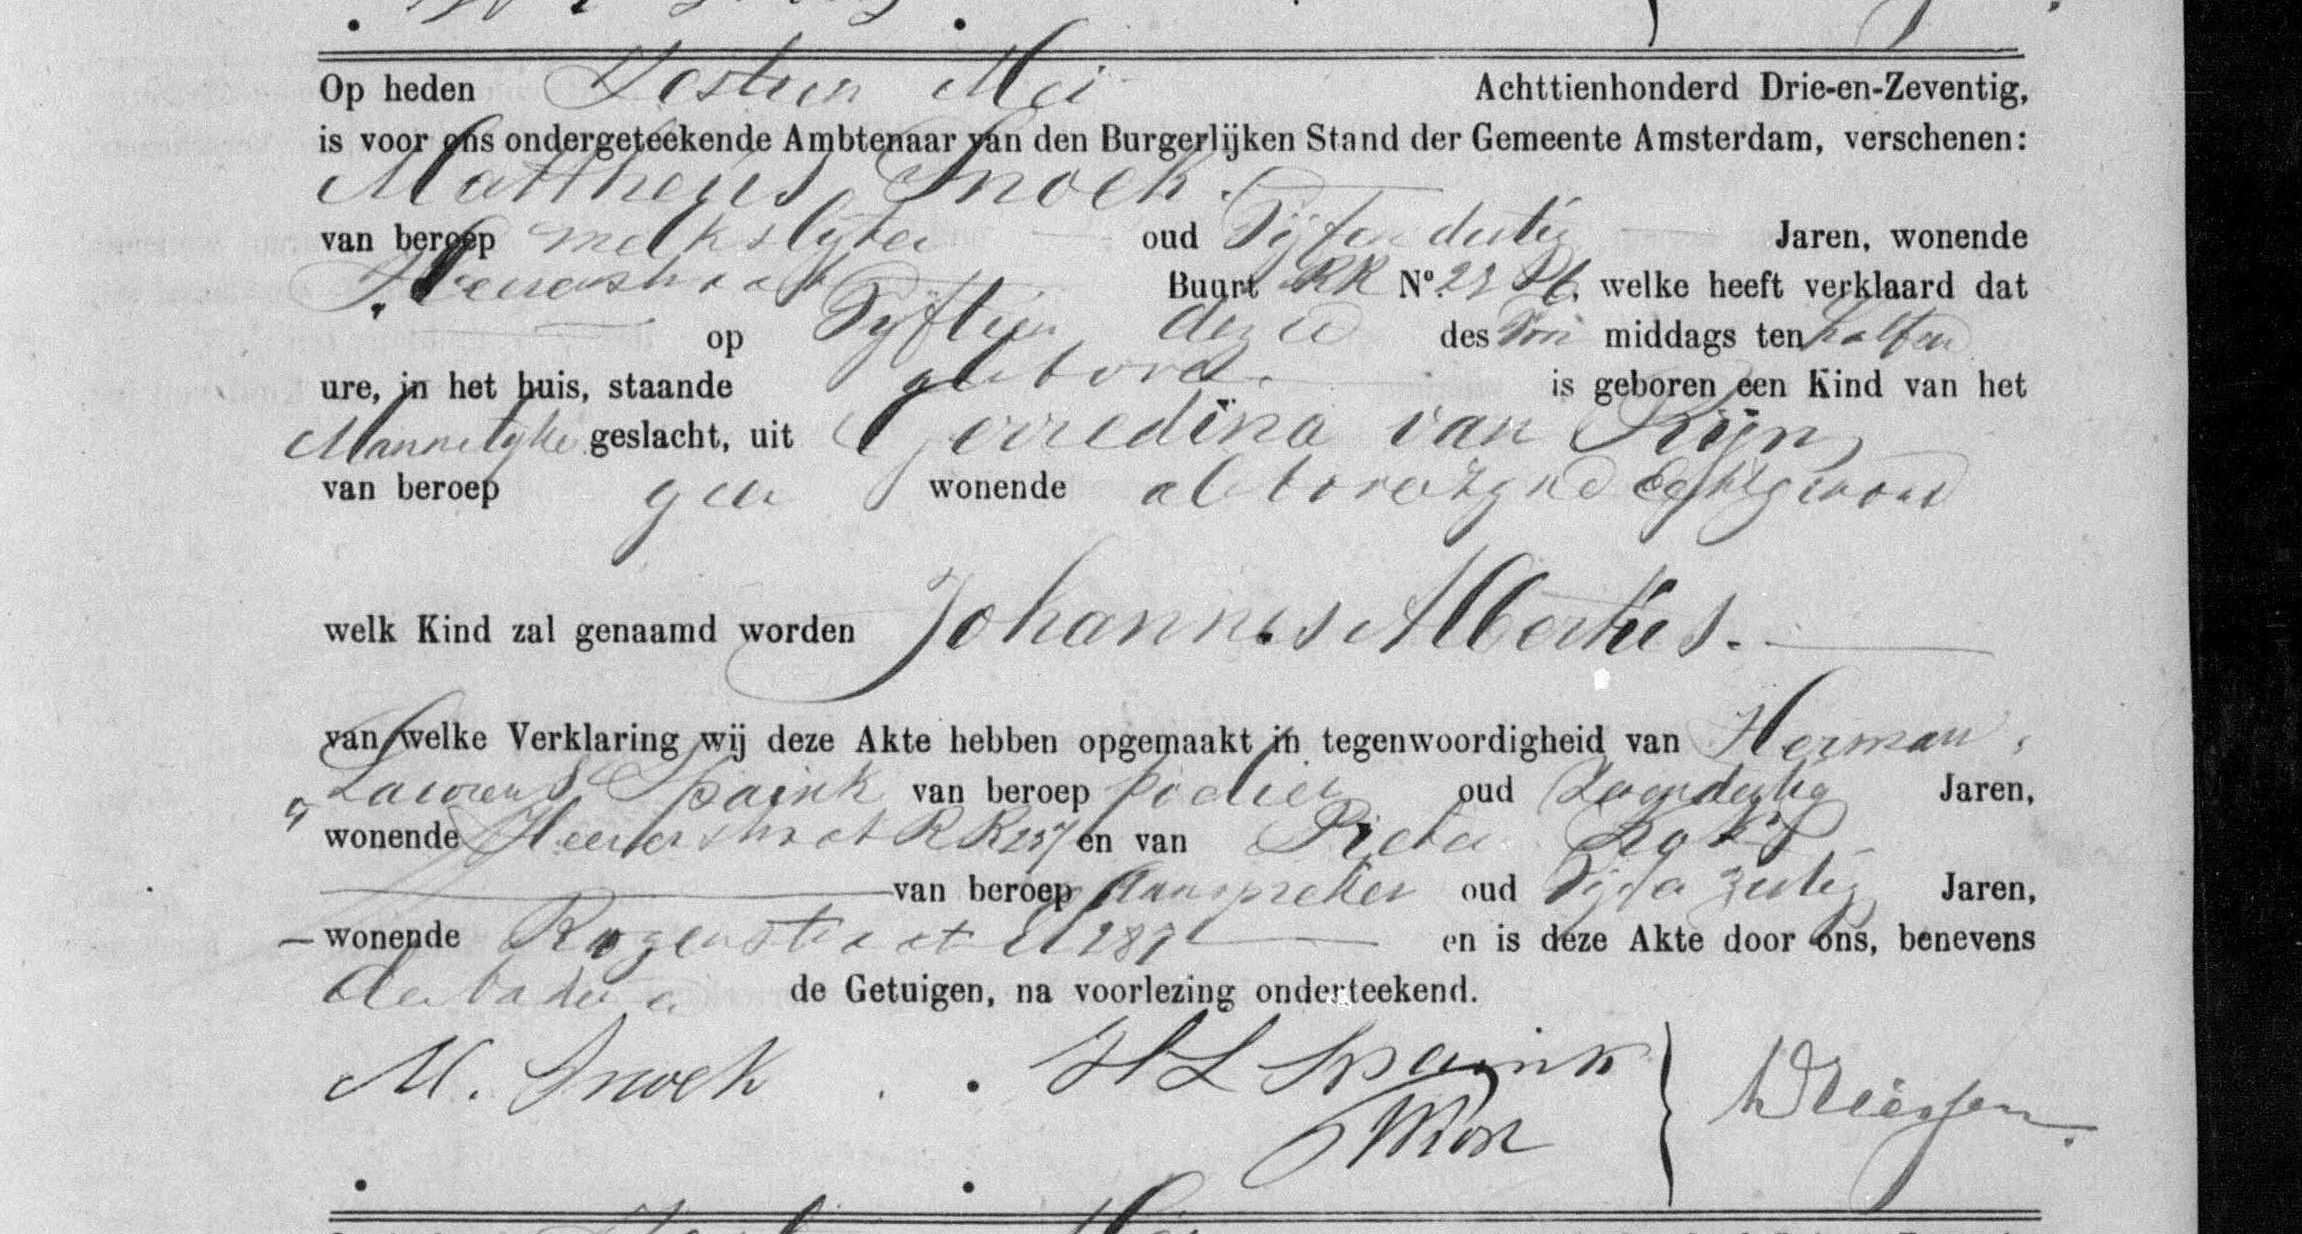 Op heden Zestien Mei Achttienhonderd Drie-en-Zeventig,
is voor ons ondergeteekende Ambtenaar van den Burgerlijken Stand der Gemeente Amsterdam, verschenen:
Mattheus Snoek.
van beroep melkslijter oud Vijfendertig Jaren, wonende
Heerenstraat Buurt RR No. 23 welke heeft verklaard dat
op Vijftien dezer des Voor middags ten half een
ure, in het huis, staande als boven is geboren een Kind van het
Mannelijke geslacht, uit Gerredina van Rijn,
van beroep geen wonende als boven zijne Echtgenoot
welk Kind zal genaamd worden Johannes Albertus.
van welke Verklaring wij deze Akte hebben opgemaakt in tegenwoordigheid van Herman
Laurens Spaink van beroep oud Jaren,
wonende Heerenstraat RR 237 en van Pieter
van beroep Aanspreker oud Jaren,
wonende Rozenstraat 287 en is deze Akte door ons, benevens
de Getuigen, na voorlezing onderteekend.
M. Snoek H L Spaink